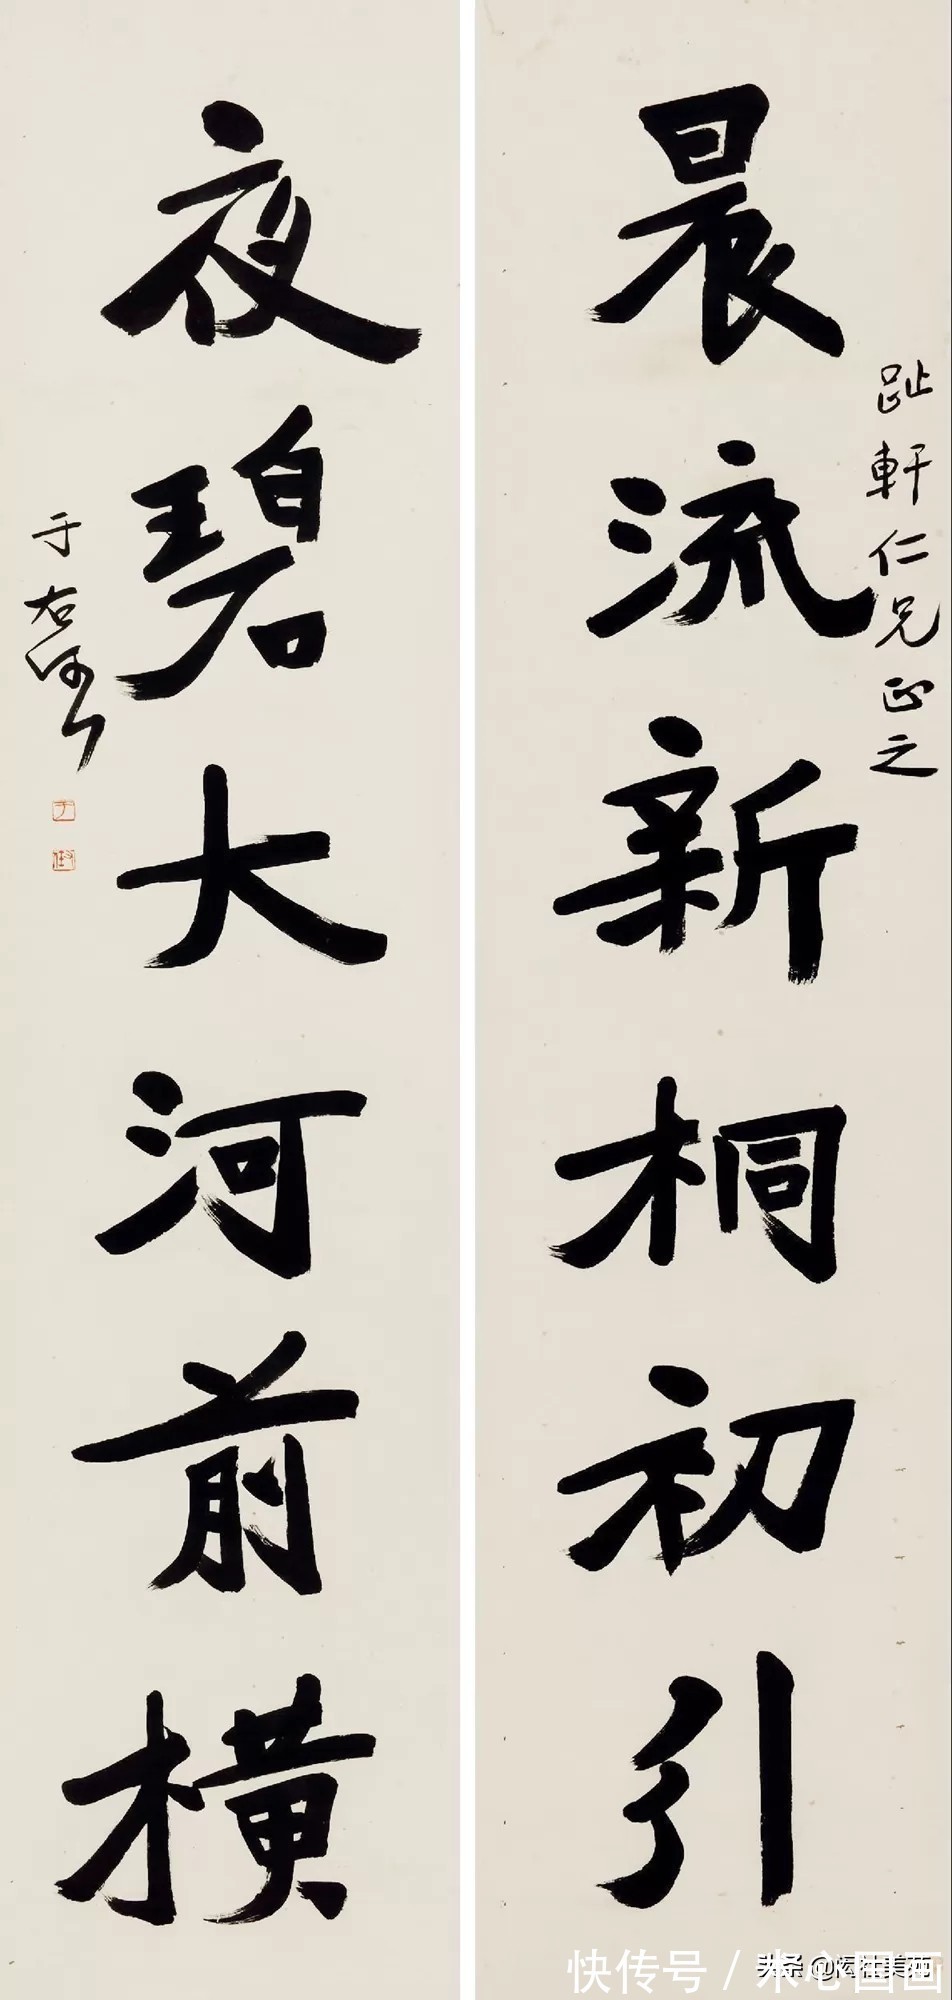 趾軒仁兄正之
晨流新桐初引
夜碧大河前橫
于右任
快传号 / 米心国画
头条 @